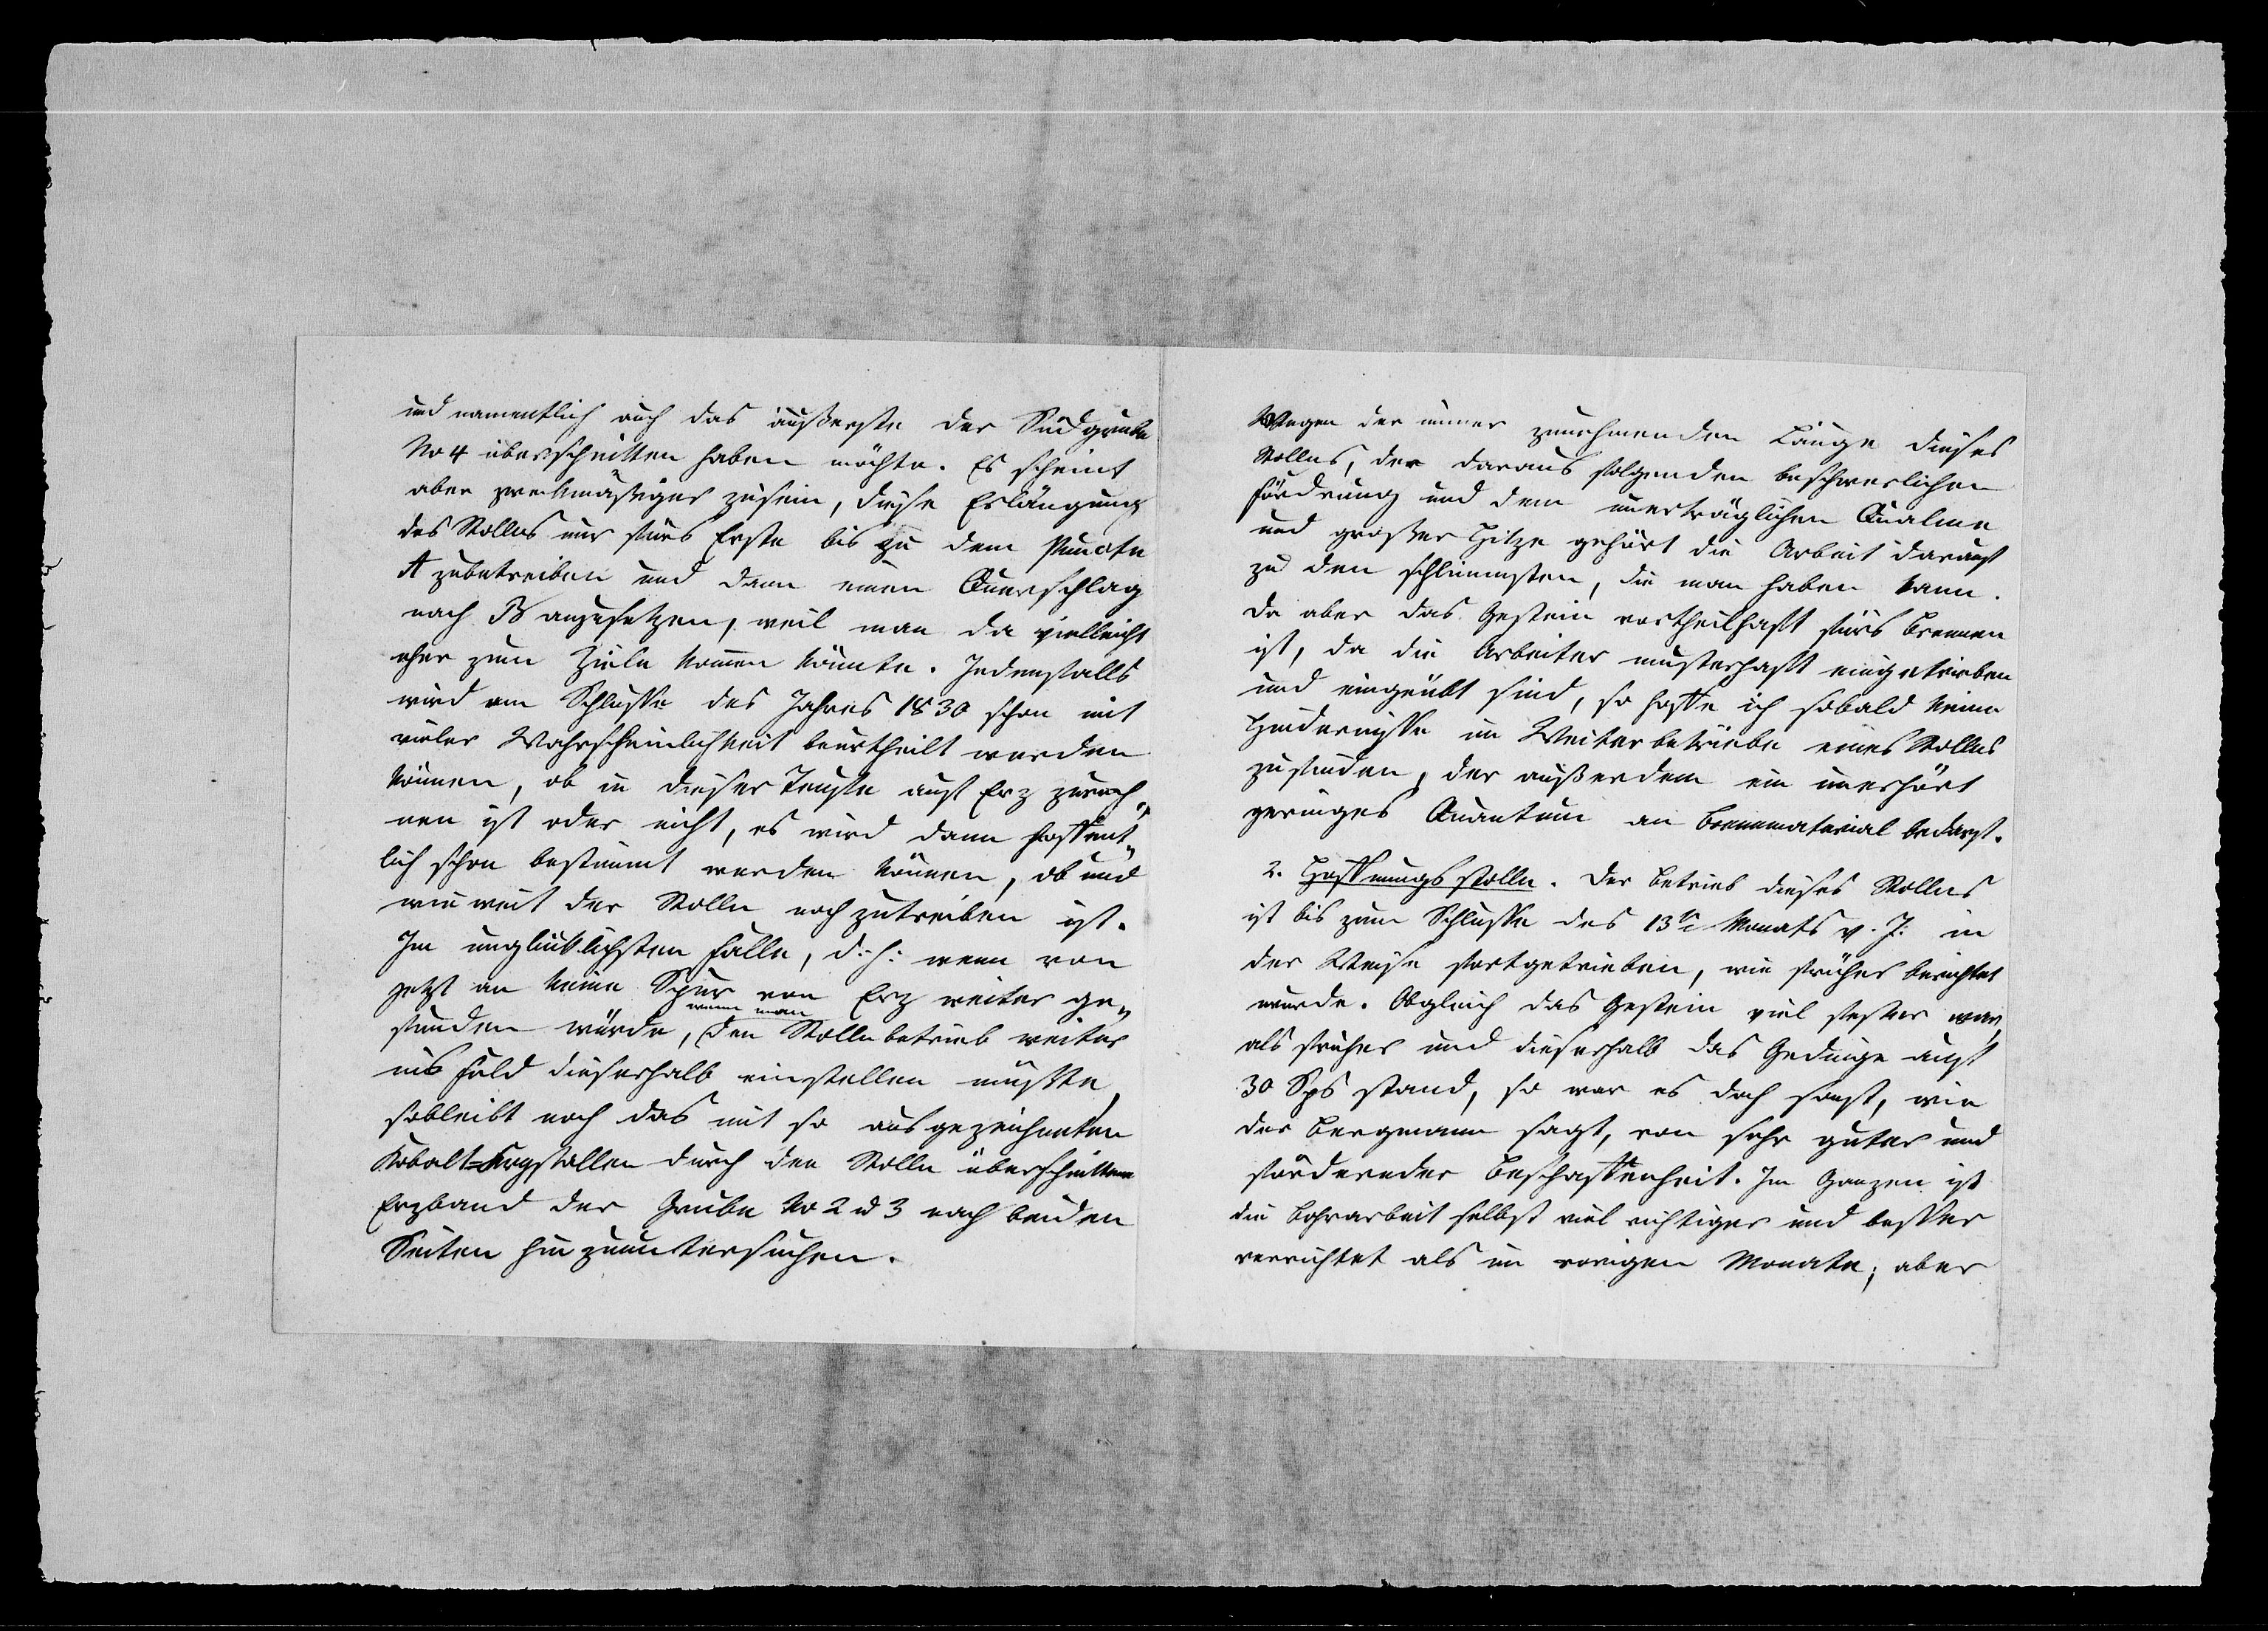 und namentlich auch das äußerste der Südgrube
No 4 überschritten haben möchte. Es scheint
aber zweckmäßiger zusein, diese Erlängung
des Stollns nur fürs Erste bis zu dem Puncte
A zubetreiben und dann einen Querschlag
nach B anzusetzen, weil man da vielleicht
eher zum Ziele kommen könnte. Jedenfalls
wird am Schlusse des Jahres 1830 schon mit
vieler Wahrscheinlichkeit beurtheilt werden
können, ob in dieser Teufe auf Erz zurech„
nen ist oder nicht, es wird dann hoffent„
lich schon bestimmt werden können, ob und
wie weit der Stolln noch zutreiben ist.
Im unglücklichsten Falle, d:h: wenn von
jetzt an keine Spur von Erz weiter ge„
wenn man
funden würde, den Stollnbetrieb weiter
ins Feld dieserhalb einstellen müßte,
sobleibt noch das mit so ausgezeichneten
Kobalt=Krystallen durch den Stolln überschrittene
Erzband der Grube No 2 u 3 nach beiden
Seiten hin zuuntersuchen.
Wegen der immer zunehmenden Länge dieses
Stollns, der daraus folgenden beschwerlichen
Fördrung und dem unerträglichen Qualme
und großer Hitze gehört die Arbeit darauf
zu den schlimmsten, die man haben kann.
Da aber das Gestein vortheilhaft fürs Brennen
ist, da die Arbeiter musterhaft eingetrieben
und eingeübt sind, so hoffe ich sobald keine
Hindernisse im Weiterbetriebe eines Stollns
zufinden, der außerdem ein unerhört
geringes Quantum an Brennmaterial bedarf.
2. Hoffnungsstolln. Der Betrieb dieses Stollns
ist bis zum Schlusse des 13tn Monats v. J: in
der Weise fortgetrieben, wie früher berichtet
wurde. Obgleich das Gestein viel fester war,
als früher und dieserhalb das Gedinge auf
30 Sps stand, so war es doch sonst, wie
der Bergmann sagt, von sehr guter und
fördernder Beschaffenheit. Im Ganzen ist
die Bohrarbeit selbst viel richtiger und besser
verrichtet als im vorigen Monate; aber